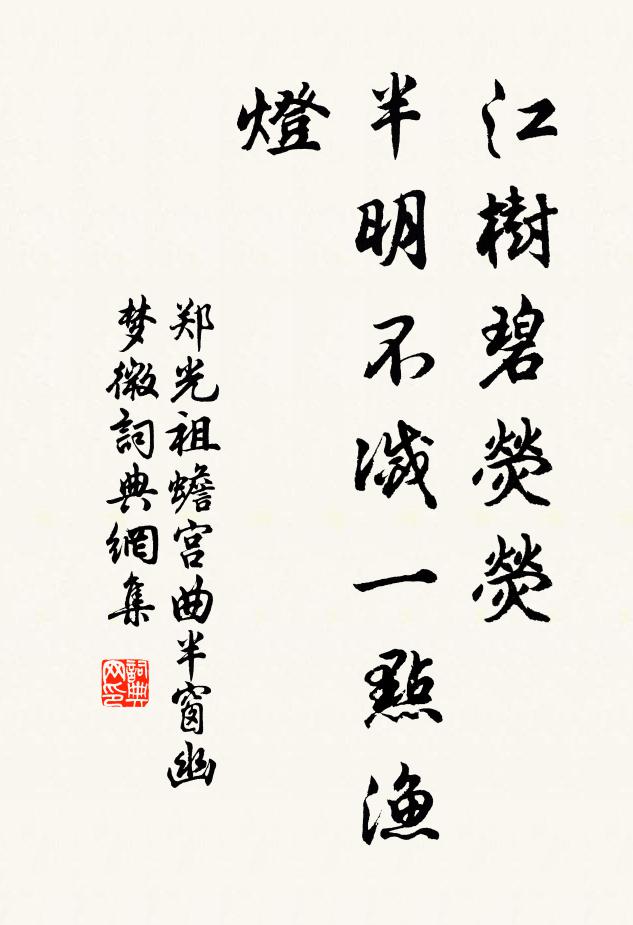 江樹碧熒熒
半明不滅一點漁
燈
郑光祖蟾宫曲半窗幽
梦微詞典網集
詞典
网印